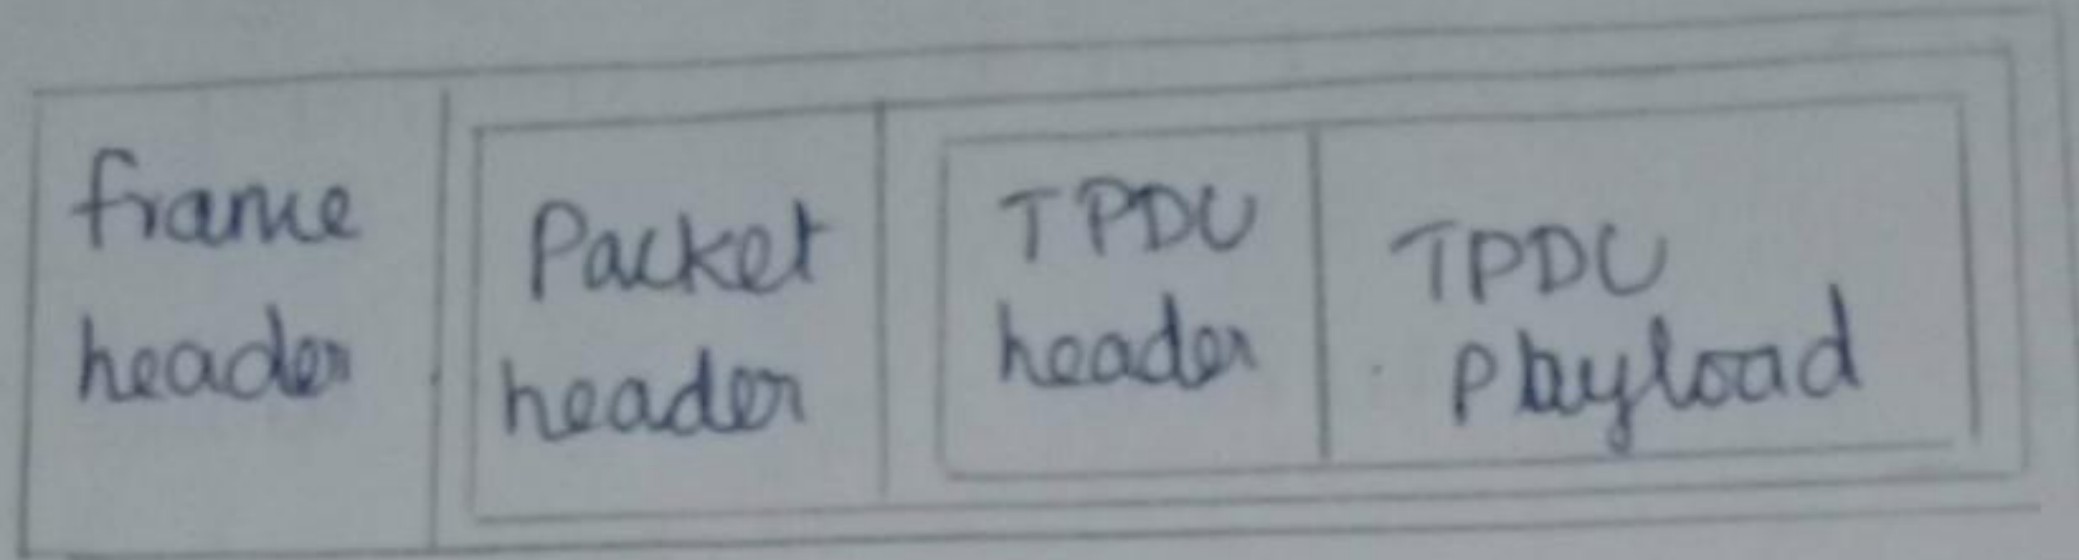 frame
header
Packet
header
TPDU
header
TPDU
Payload